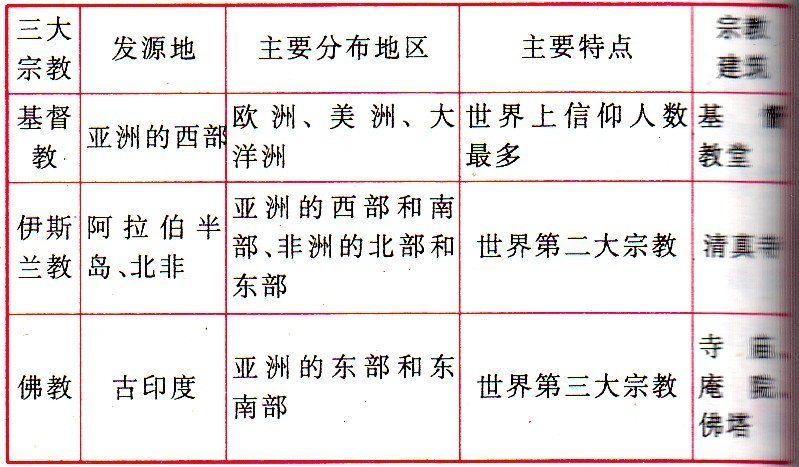 三大
宗教
发源地
主要分布地区
主要特点
宗教
建筑
基督
教
亚洲的西部
欧洲、美洲、大
洋洲
世界上信仰人数
最多
基 督
教堂
伊斯
兰教
阿拉伯半
岛、北非
亚洲的西部和南
部、非洲的北部和
东部
世界第二大宗教
清真寺
佛教
古印度
亚洲的东部和东
南部
世界第三大宗教
寺 庙
庵 院
佛塔